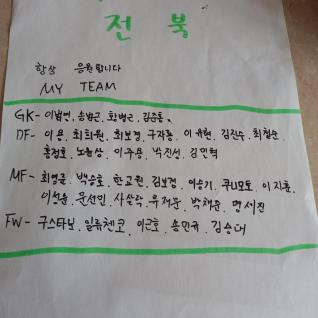 전 북
항상 응원합니다
MY TEAM
GK- 이범영, 송범근, 황병근, 김준홍
DF- 이용, 최희원, 최보경, 구자룡, 이유현, 김진수, 최철순
홍정호, 노윤상, 이주용, 박진성, 김민혁
MF- 최영준, 백승호, 한교원, 김보경, 이승기, 쿠니모토, 이지훈
이성윤, 문선민, 사살락, 류재문, 박채준, 명세진
FW- 구스타보, 일류첸코, 이근호, 송민규, 김승대